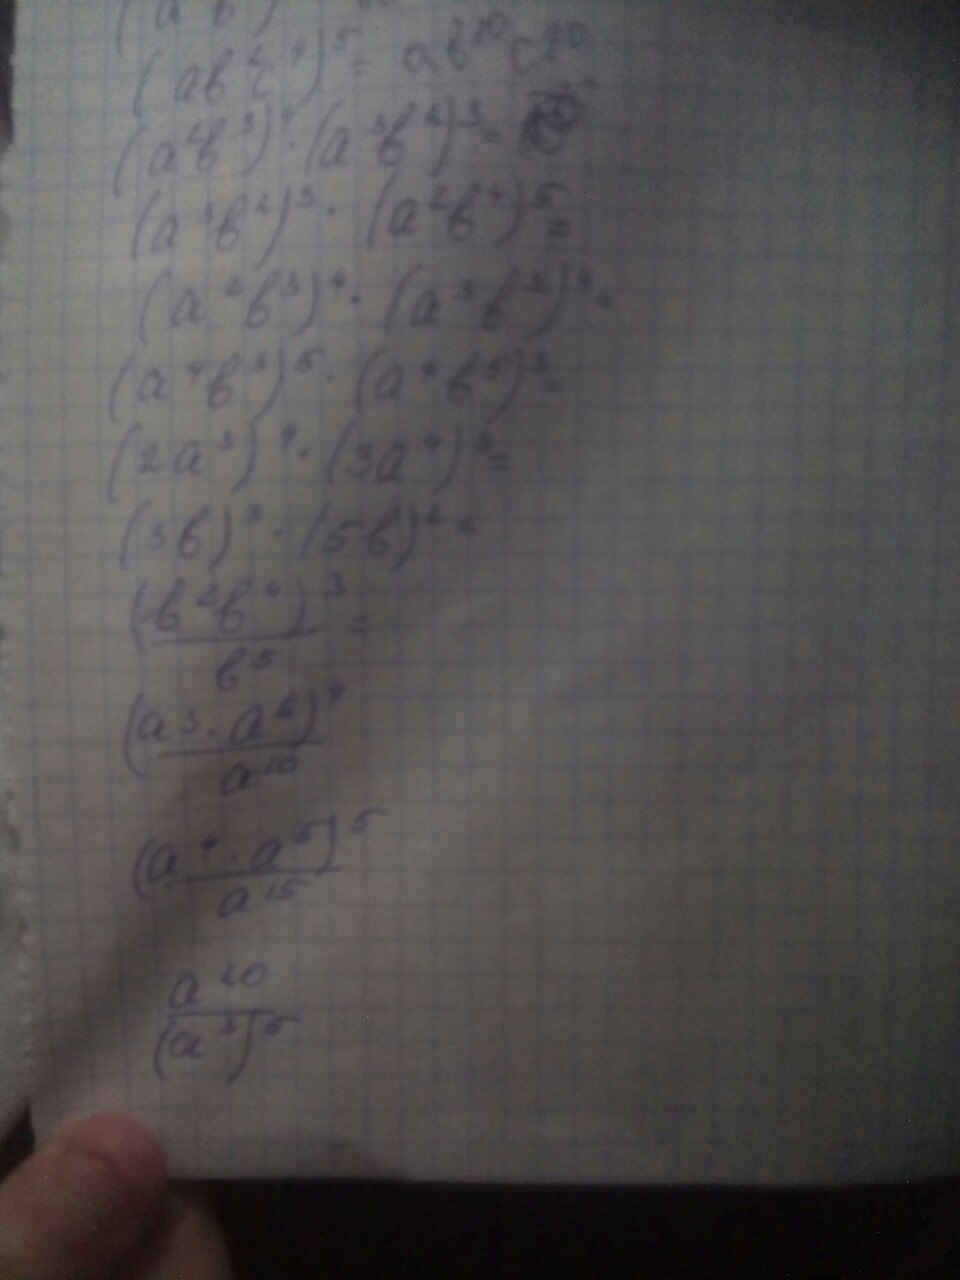 (ab²c⁴)⁵ = ab¹⁰c²⁰
(a²b³)⁴ · (a³b²)³ =
(a³b²)³ · (a²b⁴)⁵ =
(a²b³)⁴ · (a³b³)⁴ =
(a⁴b³)⁵ · (a⁴b⁵)³ =
(2a³)⁴ · (3a⁴)³ =
(3b)³ · (5b)² =
(b²b⁴)³ / b⁵ =
(a³ · a²)⁴ / a¹⁰
(a⁴ · a⁵)⁵ / a¹⁵
a²⁰ / (a³)⁵